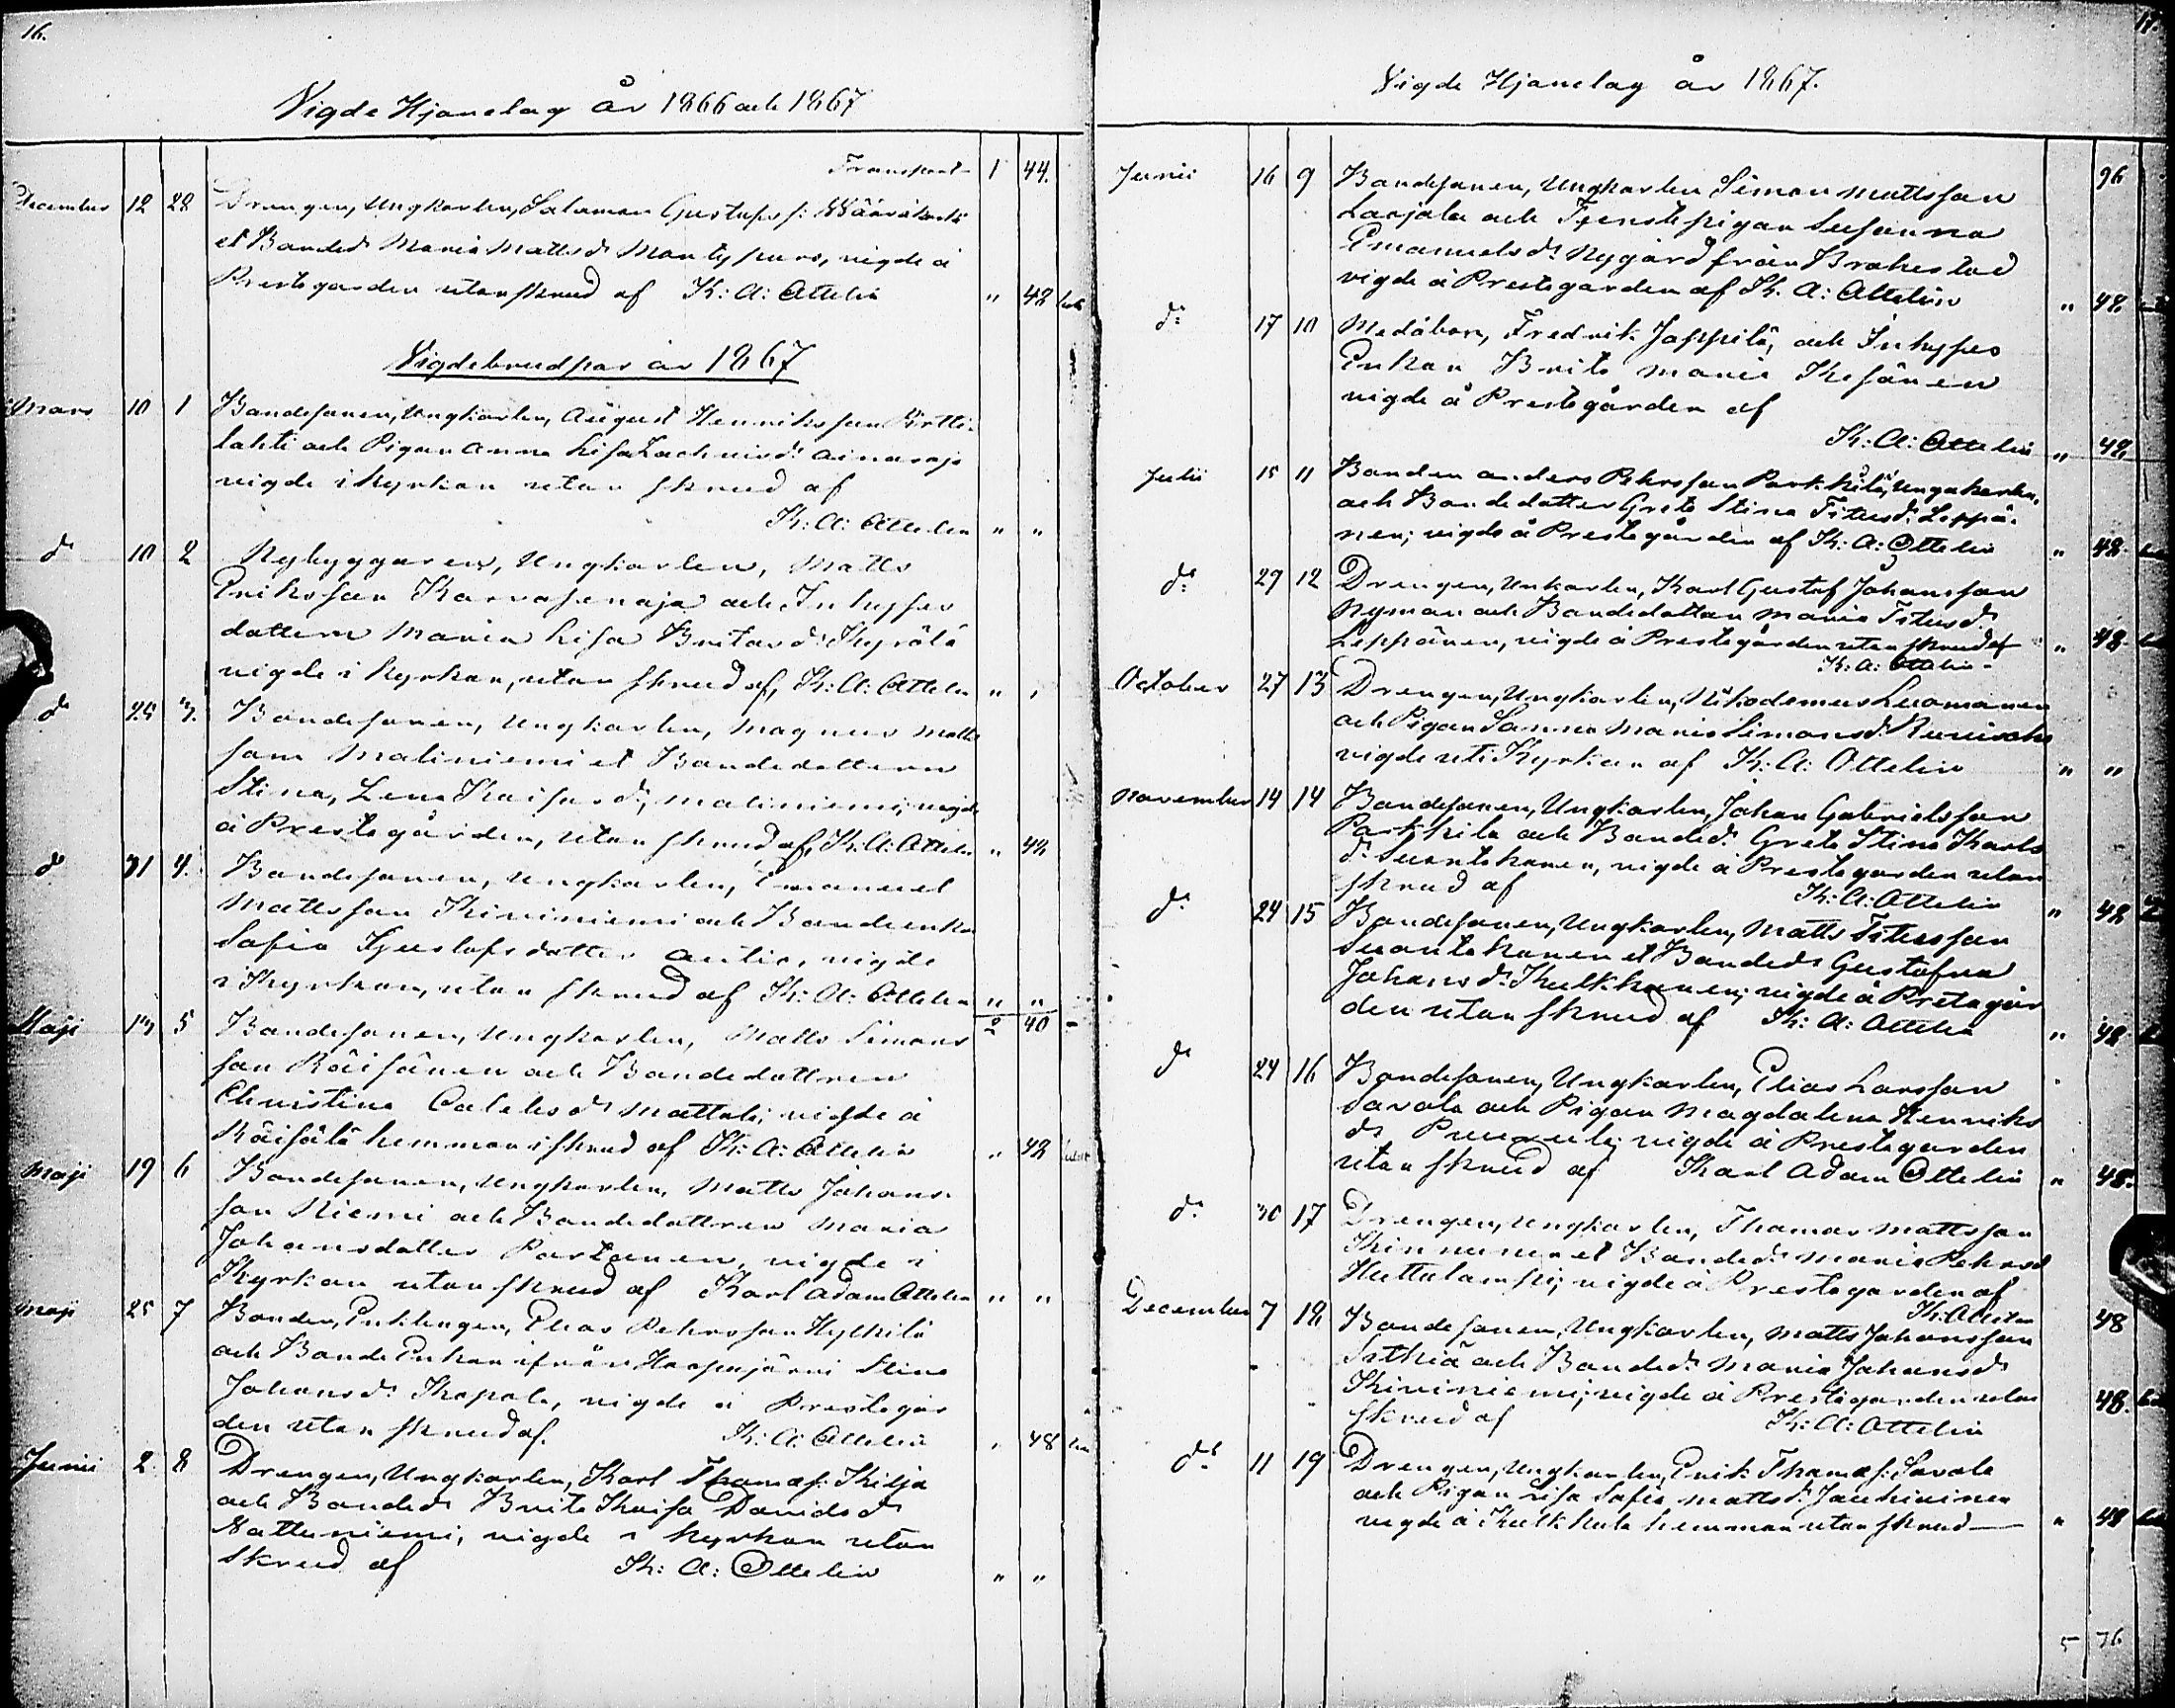 16.
Vigde Hjonelag år 1866 och 1867
Transport 1 44.
December 12 28 Drengen, Ungkarlen, Salomon Gustafs s:
et Bonded Maria Mattsd. vigde å
Prestgården utan skrud af K: A: Ottelin " 48
Vigde brudpar år 1867
Mars 10 1 Bondesonen, Ungkarlen, August Henriksson Pirtti-
lahti och Pigan Anna Lisa Zachrisd:
vigde i kyrkan utan skrud af
K: A: Ottelin " "
d: 10 2 Nybyggaren, Ungkarlen, Matts
Eriksson Karvasenaja och Inhyses
dottern Maria Lisa Britasd: Kyrölä
vigde i kyrkan, utan skrud af, K: A: Ottelin " "
d: 25 3. Bondesonen, Ungkarlen, Magnus Matts
son Maliniemi et Bondedottern
Stina, Lena Kaisasd:, Maliniemi, vigde
å Prestegården, utan skrud af, K: A: Ottelin " 48
d: 31 4. Bondesonen, Ungkarlen, Emanuel
Mattsson Kiviniemi och Bondeenka
Sofia Gustafsdotter Autio, vigde
i Kyrkan, utan skrud af K: A: Ottelin " "
2 40
Maji 13 5 Bondesonen, Ungkarlen, Matts Simons
son Räisänen och Bondedottren
Christina Calebsd: Mattila, vigde å
Räisälä hemman i skrud af K: A: Ottelin " 48
Maji 19 6 Bondesonen, Ungkarlen, Matts Johans
son Niemi och Bondedottren Maria
Johansdotter Partanen, vigde i
Kyrkan utan skrud af Karl Adam Ottelin " "
Maji 25 7 Bonden, Enklingen, Elias Pehrsson Hylkilä
och Bonde Enkan ifrån Haapajärvi Stina
Johansd: Kopola, vigde å Prestegår
den utan skrud af. K: A: Ottelin " 48
Junii 2 8 Drengen, Ungkarlen, Karl Thomas s: Kilja
och Bonded: Brita Kaisa Davidsd:
Nattuniemi, vigde i kyrkan utan
skrud af K: A: Ottelin " "
17.
Vigde Hjonelag år 1867.
96
Junii 16 9 Bondesonen, Ungkarlen Simon Mattsson
Larjala och Tjenstepigan Susanna
Emanuelsd: Nygård från Brahestad
vigde å Prestegården af K. A: Ottelin " 48.
d: 17 10 Medåbon, Fredrik Jappilä, och Inhyses
Enkan Brita Maria Kesänen
vigde å Prestegården af
K: A: Ottelin " 48
Julii 15 11 Bonden Anders Pehrsson Parkkila, Ungakarlen,
och Bondedotter Greta Stina Titusd: Leppä-
nen; vigde å Prestegården af K: A: Ottelin " 48.
d: 29 12 Drengen, Unkarlen, Karl Gustaf Johansson
Nyman och Bondedottren Maria Titusd:
Leppänen, vigde å Prestegården utan skrud af " 48.
K: A: Ottelin
October 27 13 Drengen, Ungkarlen, Nikodemus Luomanen
och Pigan Sanna Maria Simonsd:
vigde uti Kyrkan af K: A: Ottelin " "
November 14 14 Bondesonen, Ungkarlen, Johan Gabrielsson
Parkkila och Bonded: Greta Stina Karls
d: Suontakanen, vigde å Prestegården utan
skrud af K: A: Ottelin " 48
d: 24 15 Bondesonen, Ungkarlen, Matts Titusson
Suontakanen et Bonded: Gustafva
Johansd: Kulkkanen; vigde å Pretegår
den utan skrud af K: A: Ottelin " 48
d: 24 16 Bondesonen, Ungkarlen, Elias Larsson
Savola och Pigan Magdalena Henriks
d: vigde å Prestegården
utan skrud af Karl Adam Ottelin " 48.
d: 30 17 Drengen, Ungkarlen, Thomas Mattsson
Kinnunen et Bonded: Maria Pehrsd
Huttulampi, vigde å Prestegården af
K: A: 48
December 7 18 Bondesonen, Ungkarlen, Matts Johansson
och Bonded: Maria Johansd:
Kiviniemi; vigde å Prestegården utan 48.
skrud af K: A: Ottelin
d: 11 19 Drengen, Ungkarlen, Erik Thomas s: Savola
och Pigan Lisa Sofia Mattsd: Jauhiainen
vigde å Kulkkula hemman utan skrud — " 48
5 76